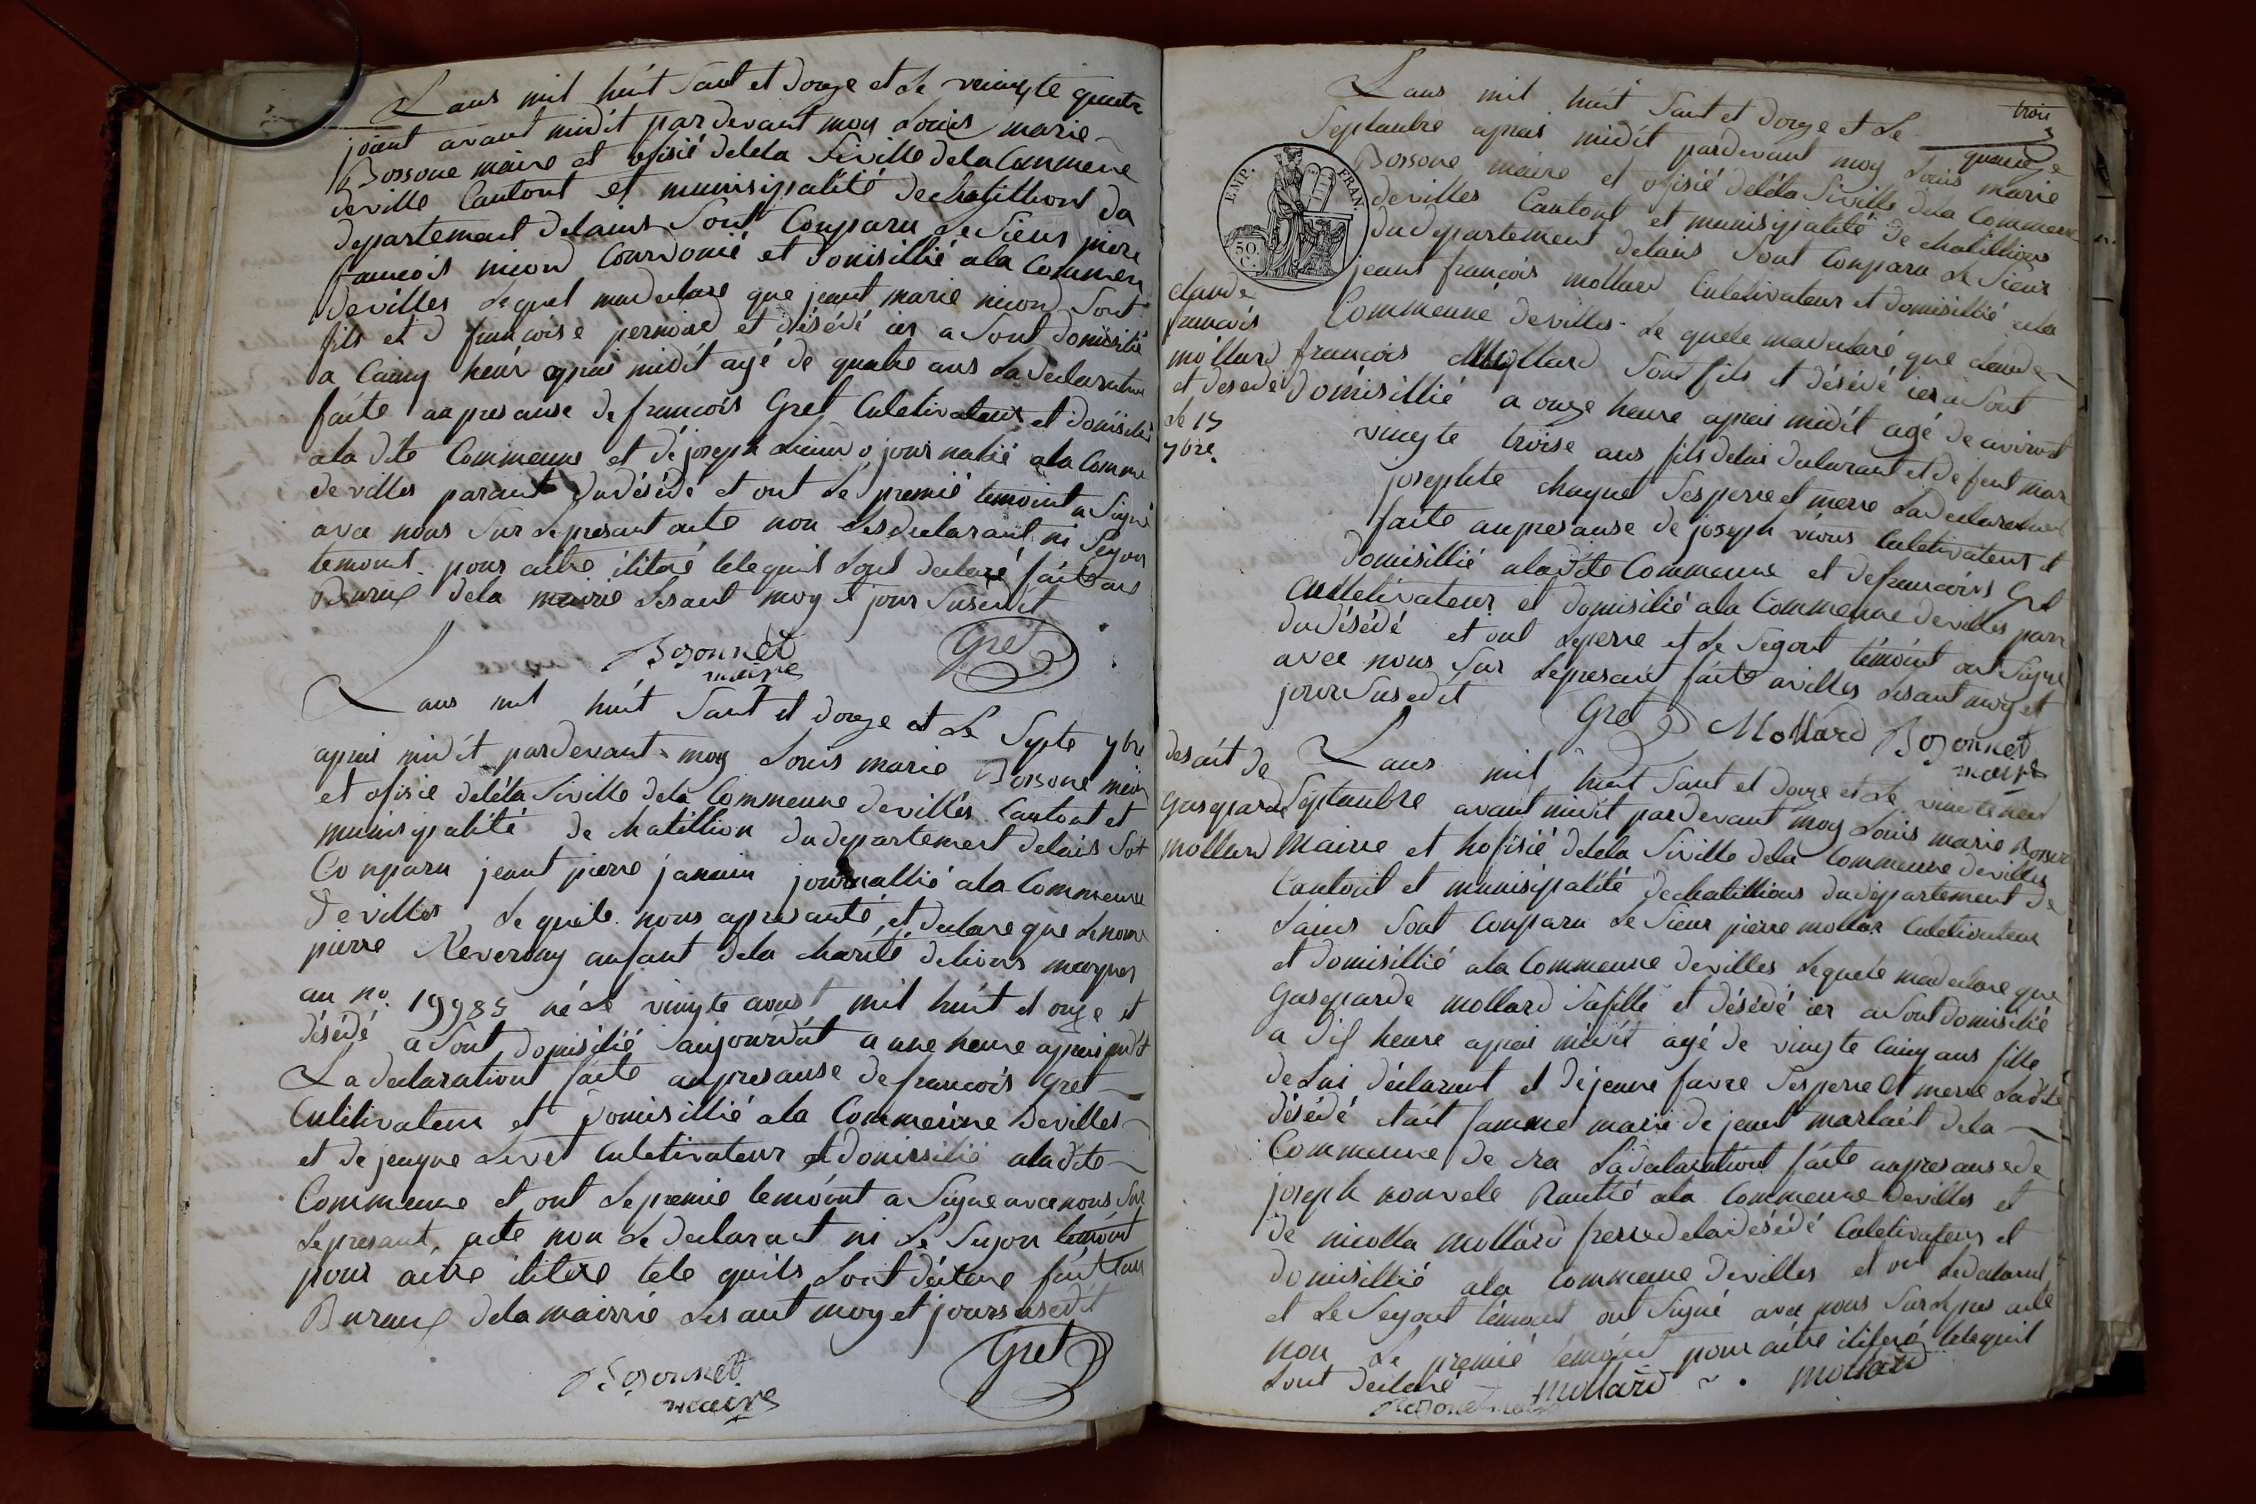 Lans mil huit Sant et douze et Le veingte quatr
jouent avant midit pardevant moy Louis marie
Bossone maire et ofisié deléta Siville dela Commene
deville Cantont et munisipalité de chatillion du
departement delains Sont Conparu Le Sieus piere
francois nicond Courdonié et domisillié ala Commen
devilles Lequel madeclare que jeant marie nicond Sont
fils et d francoise pernoud et désédé ier a Sont domisilié
a Cainq heur aprai midit agé de quatre ans La declaration
faite anpresanse de francois Gret Culetivateur et domisilié
ala dite Commeune et de joseph journalié ala Comme
devilles parant dudésédé et ont Le premié temoint a Signé
avec nous Sur Lepresant acte non Lesdeclarant ni Segon
temoint pour aitre ilitaré telequil Lont declaré fait au
Buraux dela mairie Lesant moy et jour Susedit
Bozonnet
maire
Gret
Lans mil huit Sant et douze et Le Sypte 7bre
aprai midit pardevant moy Louis marie Bossone maire
et ofisié deléta Siville dela Commeune devilles Cantont et
munisipalité de chatillion dudepartement delains Sont
Conparu jeant pierre janain journallié ala Commeune
devilles Lequele nous apresanté et declare que Lenome
pierre Neverday anfant dela charité delions marques
au no. 19985 né Le vingte aoust mil huit et onze et
désédé a Sont domisilié aujourduit a une heure aprai midit
La declarationt faite anpresanse de francois Gret
Culetivateur et domisillié ala Commeune devilles
et de jeaque Livet Culetivateur et domissilié aladite
Commeune et ont Lepremié temoint a Signe avec nous Sur
Lepresant acte non Le declarant ni Le Segon temoint
pour aitre iliteré tele quils Lont déclare fait au
Buraux dela mairrie Lesant moy et jour susedit
Gret
Bozonnet
maire
trois
3
Lans mil huit Sant et douze et Le quainze
Septanbre aprai midit pardevant moy Louis marie
Bossone maire et ofisié deléta Siville dela Commeune
devilles Cantont et munisipalité de chatillions
du departement delains Sont Conparu Le Sieur
jeant françois mollard Culetivateur et domisillié ala
EMP. FRAN.
50 C.
claude
francois
mollard
et desede
le 15
7bre.
Commeune devilles Le quele madeclaré que claude
francois Mollard Sont fils et désédé ier a Sont
domisillié a onze heure aprai midit agé de aviront
vingte troise ans fils delui declarant et de feut mar
josephte chaquet Sesperre et merre La declaration
faite anpresanse de joseph Culetivateur et
domisillié aladite Commeune et defrancoins Gret
Cultetivateur et domisilié ala Commeune devilles paran
du désédé et ont Leperre et Le Segont témoint ont Signe
avec nous Sur Lepresant faite avilles Lesant moy et
jour Susedit
Gret Mollard Bozonnet
maire
desait de
Gaseparde
mollard
Lans mil huit Sant et douze et Le vinete neuf
Septanbre avant midit pardevant moy Louis marie Bossone
Mairre et hofisié deléta Siville dela Commeune devilles
Cantont et munisipalité dechatillions dudepartement de
Lains Sont Conparu Le Sieur pierre mollar Culetivateur
et domisillié ala Commeune devilles Lequele madeclare que
Gaseparde mollard Safille et désédé ier a Sont domisilié
a dix heure aprai midit agé de vingte Cainq ans fille
de Lui déclarant et dejeanne favre Sesperre et merre Ladite
désédé etait famme marie de jeant marlait dela
Commeune de cra Ladeclarationt faite anpresansede
joseph nouvele Rantié ala Commeune devilles et
de nicolla mollard frerre dela désédé Culetivateur et
domisillié ala Commeune devilles et ont Ledeclarant
et Le Segont témoint ont Signé avec nous Sur Lepres acte
non Le premié témoint pour aitre ilitéré telequil
Lont déclaré
mollard mollard
Bozonet maire